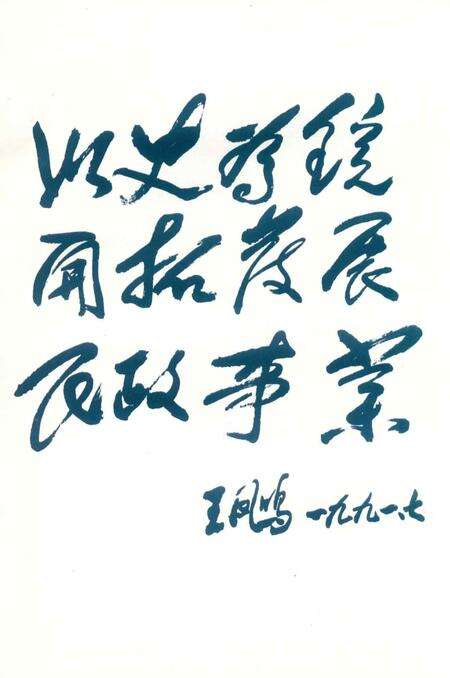 以史为镜
开拓发展
民政事業
王凤鸣 一九九一.七